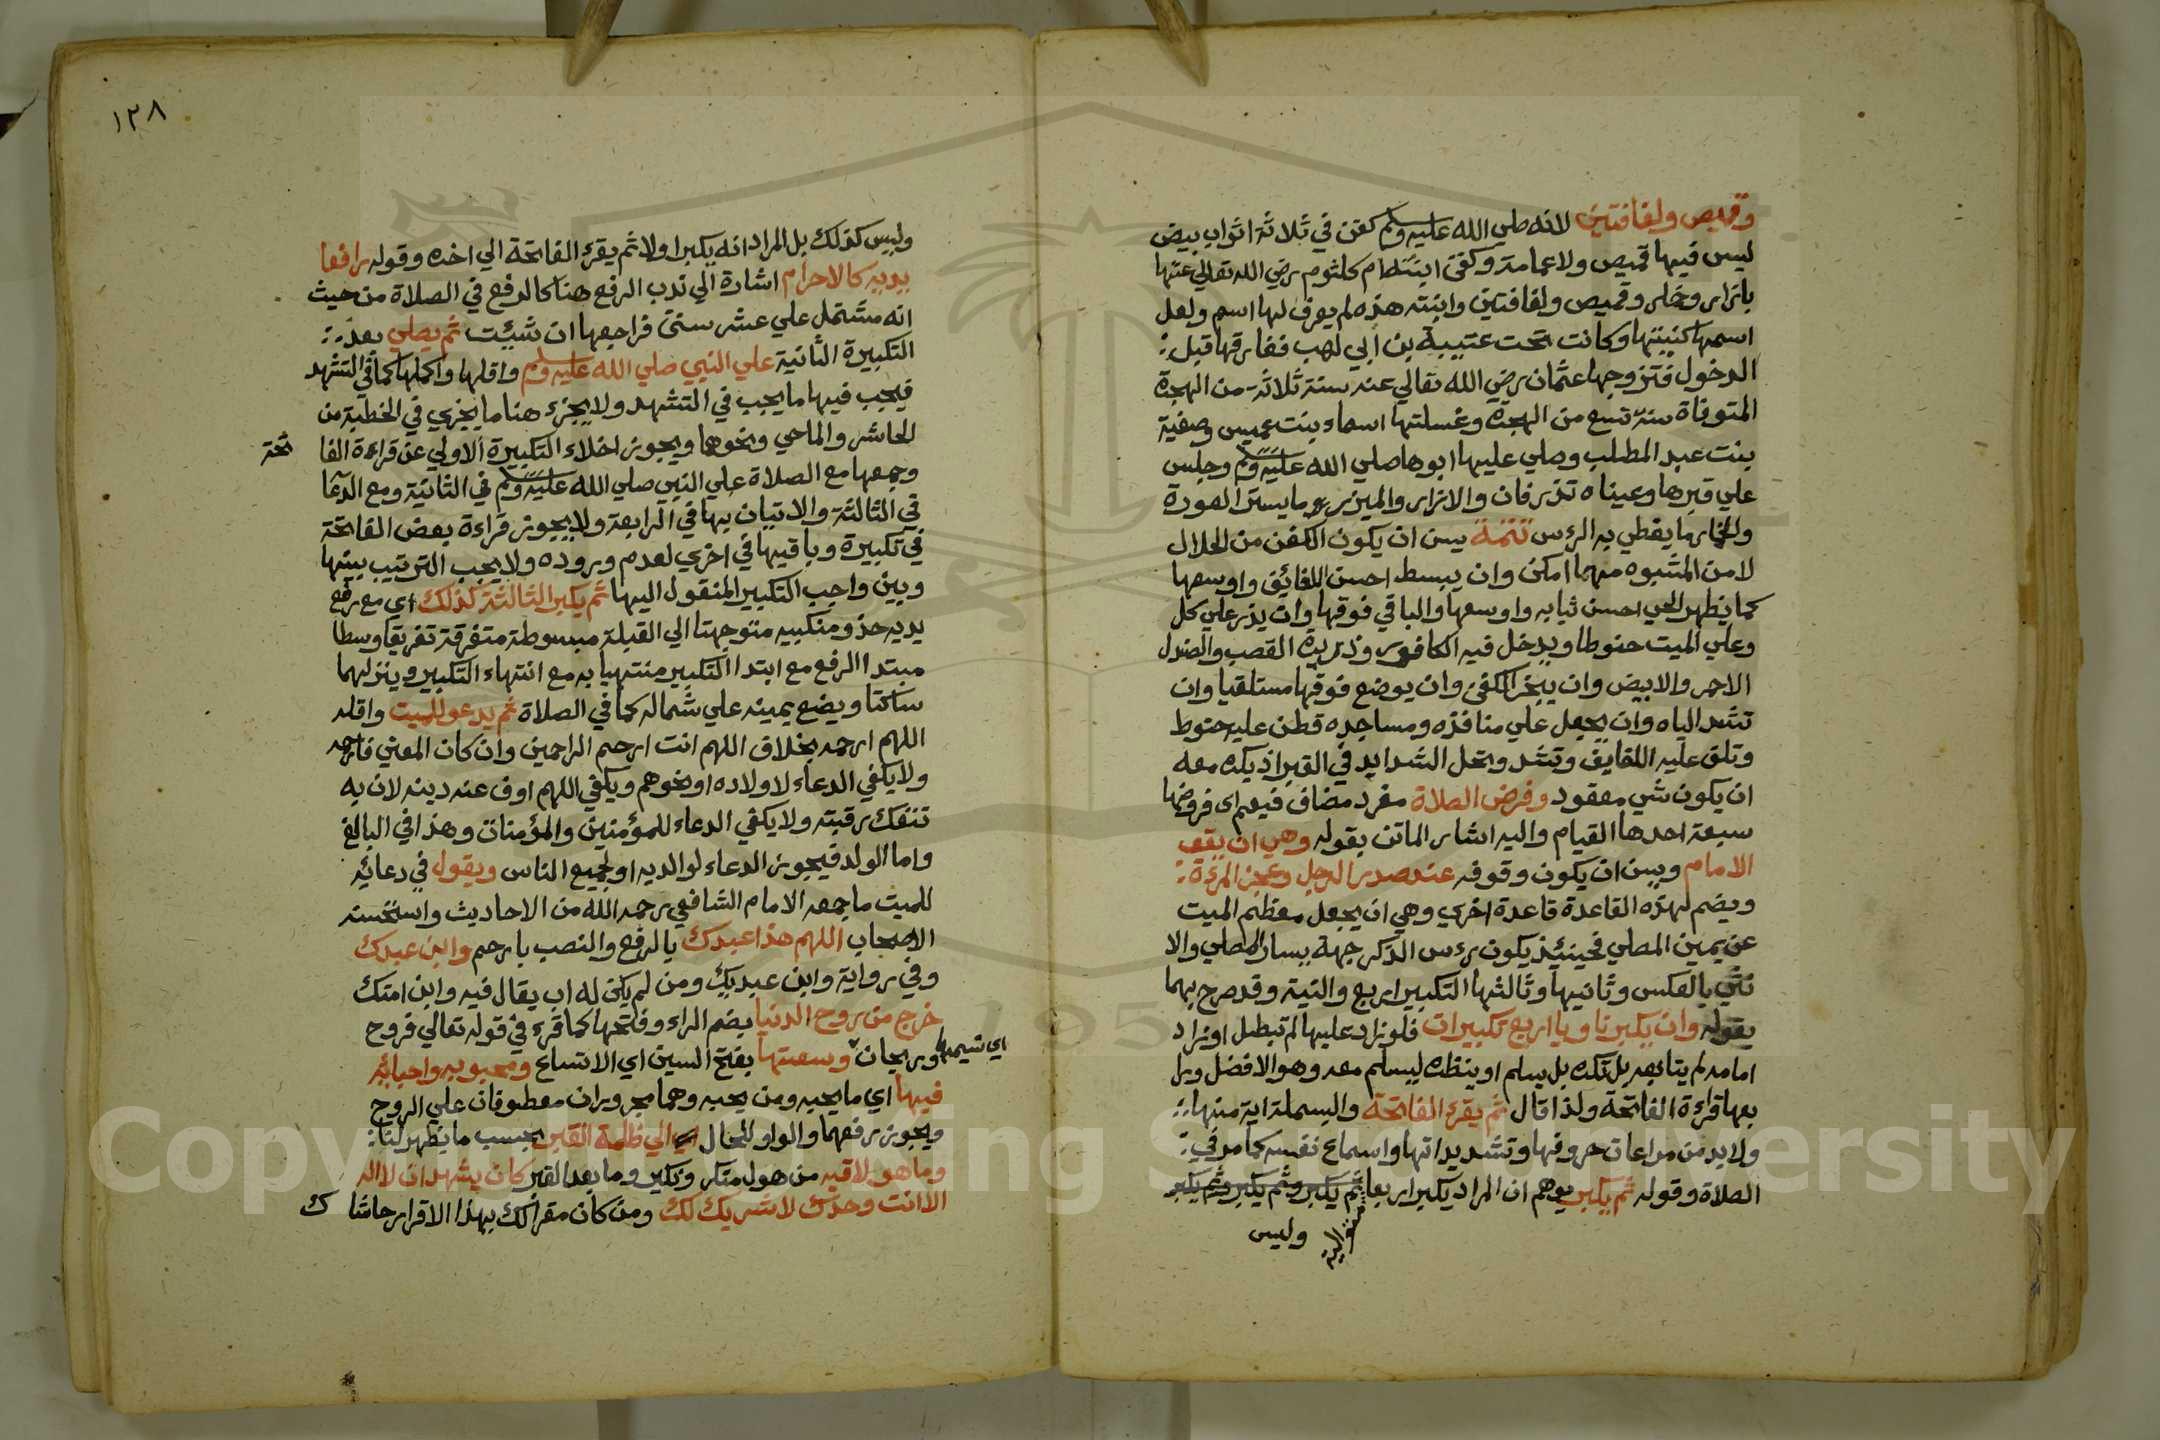 وقميص ولفافتين لانه صلي الله عليه وسلم كفن في ثلاثة اثواب بيض
ليس فيها قميص ولا عمامة وكفن ابنته ام كلثوم رضي الله تعالي عنها
بازار وخمار وقميص ولفافتين وابنته هذه لم يعرف لها اسم ولعل
اسمها كنيتها وكانت تحت عتيبة بن ابي لهب ففارقها قبل
الدخول فتزوجها عثمان رضي الله تعالي عنه سنة ثلاثة من الهجرة
المتوفاة سنة تسع من الهجرة وغسلتها اسماء بنت عميس وصفية
بنت عبد المطلب وصلي عليها ابوها صلي الله عليه وسلم وجلس
علي قبرها وعيناه تذرفان والازار والميزر ما يستر العورة
والخمار ما يغطي به الرس تتمة يسن ان يكون الكفن من الحلال
لا من المشبوه مهما امكن وان يبسط احسن اللفائف واوسعها
كما يظهر الحي احسن ثيابه واوسعها والباقي فوقها وان يذر علي كل
وعلي الميت حنوطا ويدخل فيه الكافور وذريرة القصب والصندل
الاحمر والابيض وان يبخر الكفن وان يوضع فوقها مستلقيا وان
تشد الياه وان يجعل علي منافذه ومساجده قطن عليه حنوط
وتلف عليه اللفايف وتشد وتحل الشدايد في القبر اذ يكره معه
ان يكون شي معقود وفرض الصلاة مفرد مضاف فيعم اي فروضها
سبعة احدها القيام واليه اشار الماتن بقوله وهي ان يقف
الامام ويسن ان يكون وقوفه عند صدر الرجل وعجز المرءة
ويضم لهذه القاعدة قاعدة اخري وهي ان يجعل معظم الميت
عن يمين المصلي فحينئذ يكون رءس الذكر جهة يسار المصلي والا
نثي بالعكس وثانيها وثالثها التكبير اربع والنية وقد صرح بهما
بقوله وان يكبر ناويا اربع تكبيرات فلو زاد عليها لم تبطل او زاد
امامه لم يتابعه بل تكره بل يسلم او ينظره ليسلم معه وهو الافضل ورا
بعها قراءة الفاتحة ولذا قال ثم يقرء الفاتحة والبسملة اية منها
ولا بد من مراعات حروفها وتشديداتها واسماع نفسه كما مر في
الصلاة وقوله ثم يكبر يوهم ان المراد يكبر اربعا ثم يكبر وثم يكبر وثم يكبر
متوالية
وليس
١٢٨
وليس كذلك بل المراد انه يكبر اولا ثم يقرء الفاتحة الي اخره وقوله رافعا
يديه كالاحرام اشارة الي ندب الرفع هنا كالرفع في الصلاة من حيث
انه مشتمل علي عشر سنن فراجعها ان شيئت ثم يصلي بعد
التكبيرة الثانية علي النبي صلي الله عليه وسلم واقلها واكملها كما في التشهد
فيجب فيها ما يجب في التشهد ولا يجزء هنا ما يجزي في الخطبة من
الحاشر والماحي ونحوهما ويجوز اخلاء التكبيرة الاولي عن قراءة الفا تحة
وجمعها مع الصلاة علي النبي صلي الله عليه وسلم في الثانية ومع الدعا
في الثالثة والاتيان بها في الرابعة ولا يجوز قراءة بعض الفاتحة
في تكبيرة وباقيها في اخري لعدم وروده ولا يجب الترتيب بينها
وبين واجب التكبير المنقول اليها ثم يكبر الثالثة كذلك اي مع رفع
يديه حذو منكبيه متوجهتا الي القبلة مبسوطة متفرقة تفريقا وسطا
مبتدا الرفع مع ابتدا التكبير منتهيا به مع انتهاء التكبير وينزلهما
ساكتا ويضع يمينه علي شماله كما في الصلاة ثم يدعو للميت واقله
اللهم ارحمه بخلاف اللهم انت ارحم الراحمين وان كان المعني فارحمه
ولا يكفي الدعاء لاولاده او نحوهم ويكفي اللهم اوف عنه دينه لان به
تنفك رقبته ولا يكفي الدعاء للمؤمنين والمؤمنات وهذا في البالغ
واما الولد فيجوز الدعاء لوالديه او لجميع الناس ويقول في دعائه
للميت ما جمعه الامام الشافعي رحمه الله من الاحاديث واستحسنه
الاصحاب اللهم هذا عبدك بالرفع والنصب يا رحم وابن عبدك
وفي رواية وابن عبديك ومن لم يكن له اب يقال فيه وابن امتك
خرج من روح الدنيا بضم الراء وفتحها كما قرء في قوله تعالي فروح
وريحان وسعتها بفتح السين اي الاتساع ومحبوبه واحبائه
اي نسيمها
فيها اي ما يحبه ومن يحبه وهما مجروران معطوفان علي الروح
ويجوز رفعهما والواو للحال الي ظلمة القبر بحسب ما يظهر لنا
وما هو لاقيه من هول منكر ونكير وما بعد القبر كان يشهد ان لا اله
الا انت وحدك لا شريك لك ومن كان مقرا لك بهذا الاقرار حاشا ك
Copyright © King Saud University
1957